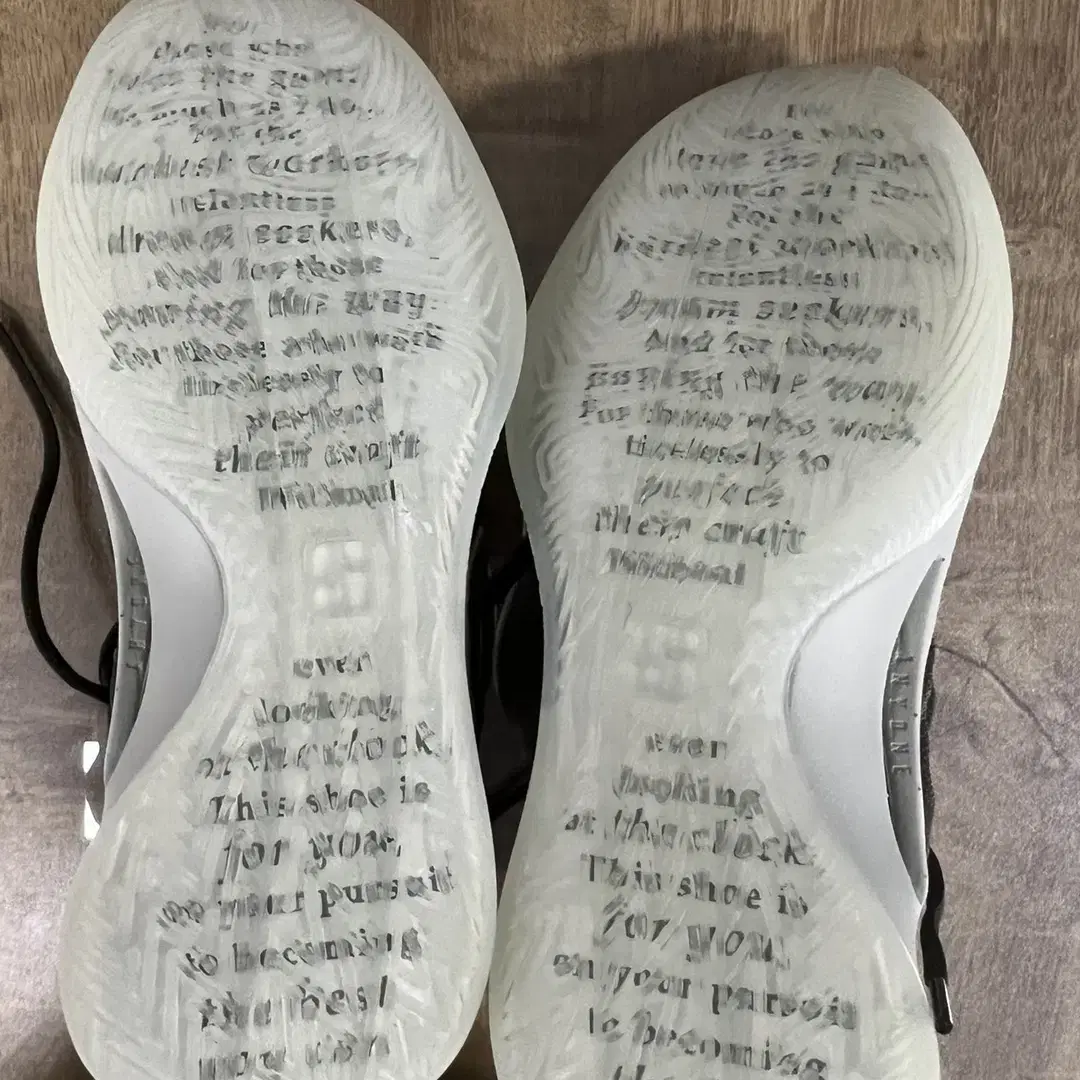 those who
love the game
as much as I do.
For the
hardest workers,
relentless
dream seekers,
And for those
paving the way.
For those who work
tirelessly to
perfect
their craft
without
ever
looking
at the clock.
This shoe is
for you,
on your pursuit
to becoming
the best
you can
For
those who
love the game
as much as I do.
For the
hardest workers,
relentless
dream seekers,
And for those
paving the way.
For those who work
tirelessly to
perfect
their craft
without
ever
looking
at the clock.
This shoe is
for you,
on your pursuit
to becoming
ANYONE